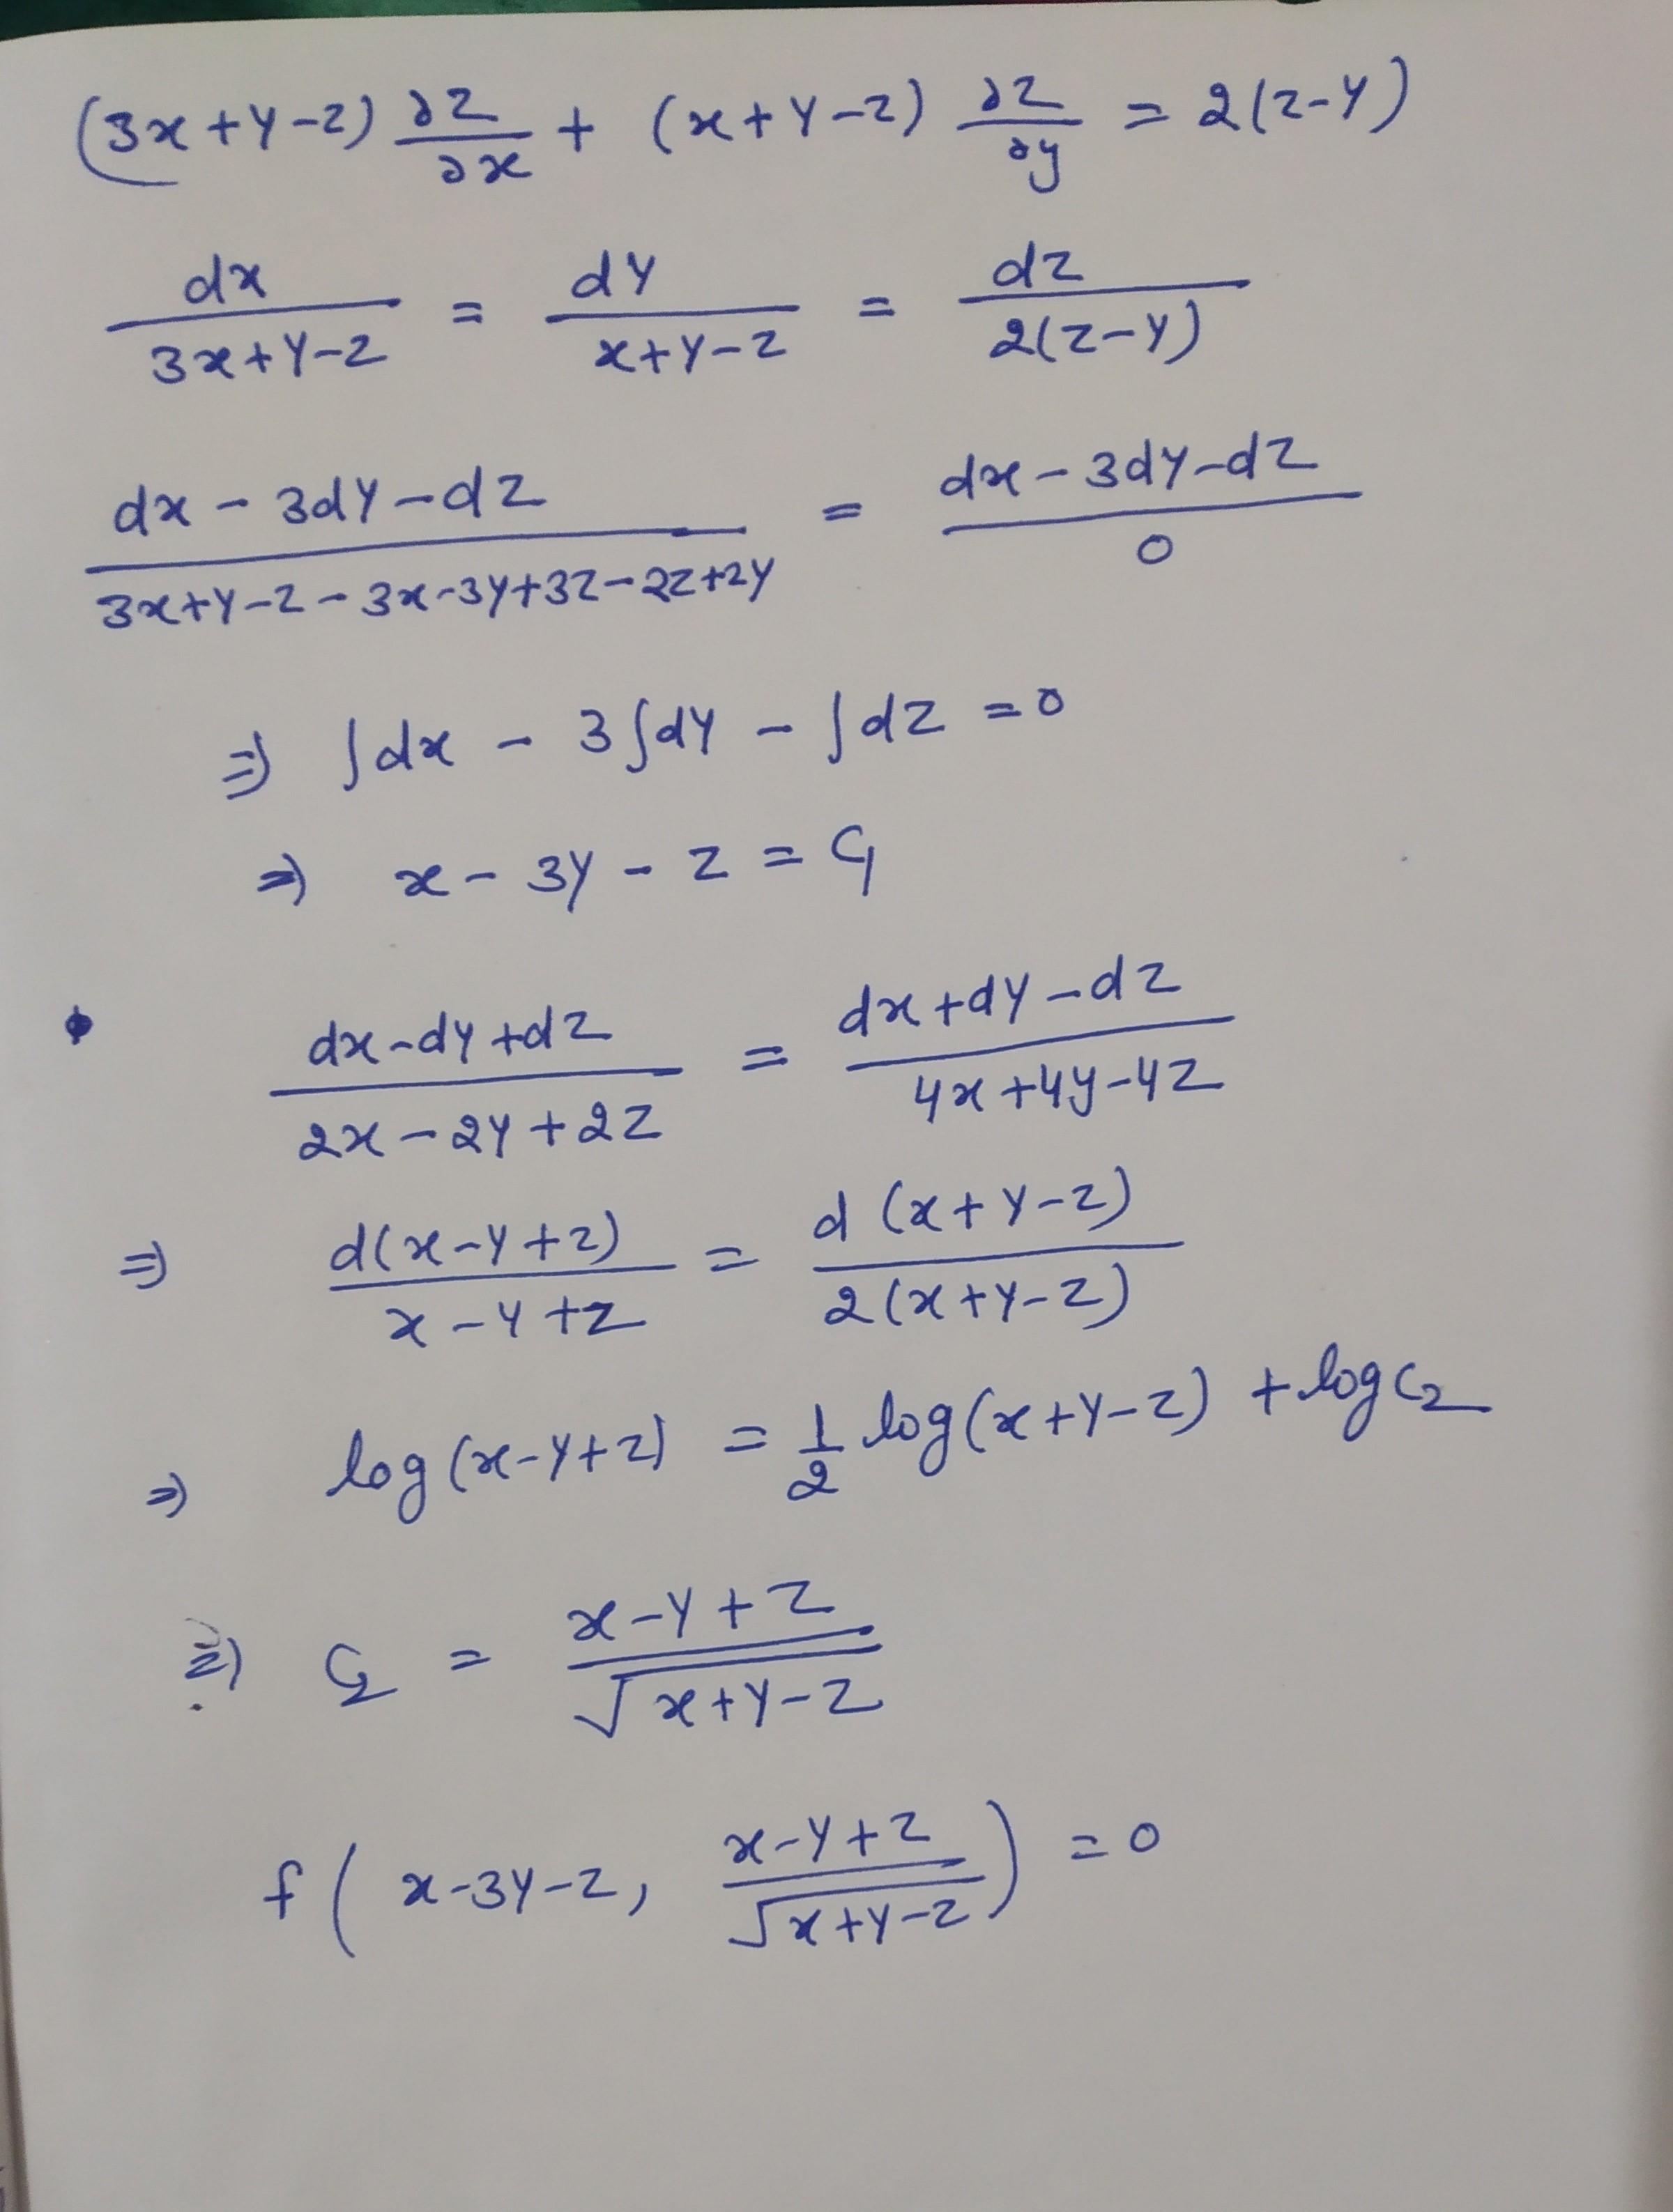 (3x+y-z) ∂z/∂x + (x+y-z) ∂z/∂y = 2(z-y)
dx/(3x+y-z) = dy/(x+y-z) = dz/(2(z-y))
(dx - 3dy - dz)/(3x+y-z-3x-3y+3z-2z+2y) = (dx - 3dy - dz)/0
⇒ ∫dx - 3∫dy - ∫dz = 0
⇒ x - 3y - z = C₁
(dx-dy+dz)/(2x-2y+2z) = (dx+dy-dz)/(4x+4y-4z)
⇒ d(x-y+z)/(x-y+z) = d(x+y-z)/(2(x+y-z))
⇒ log(x-y+z) = 1/2 log(x+y-z) + log C₂
⇒ C₂ = (x-y+z)/√(x+y-z)
f(x-3y-z, (x-y+z)/√(x+y-z)) = 0